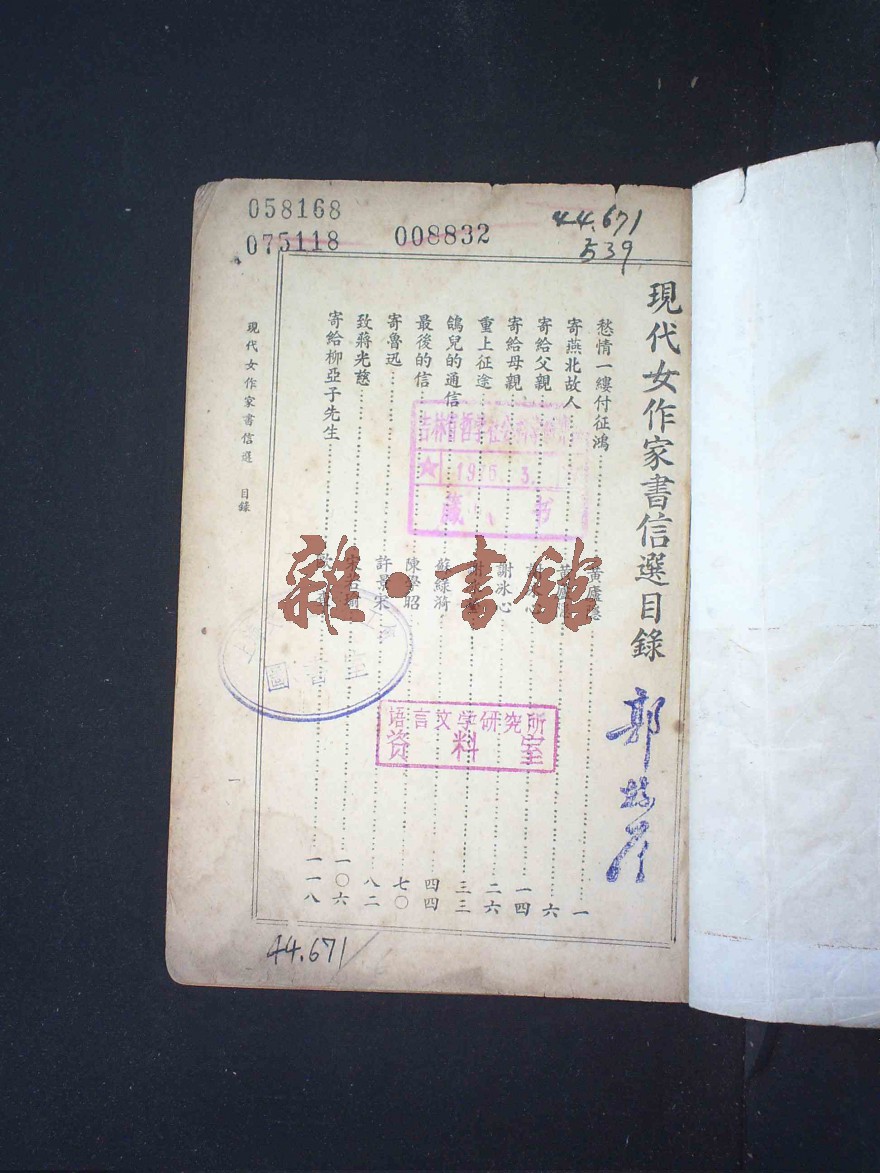 058168
075118
008832
44.671
539
現代女作家書信選目錄
愁情一縷付征鴻 一
寄燕北故人 六
寄給父親 一四
寄給母親 謝冰心 二六
重上征途 三三
鴿兒的通信 蘇綠漪 四四
最後的信 陳學昭 七〇
寄魯迅 許景宋 八二
致蔣光慈 一〇六
寄給柳亞子先生 一一八
現代女作家書信選 目錄
一
藏書
雜·書館
圖書室
语言文学研究所
资料室
44.671